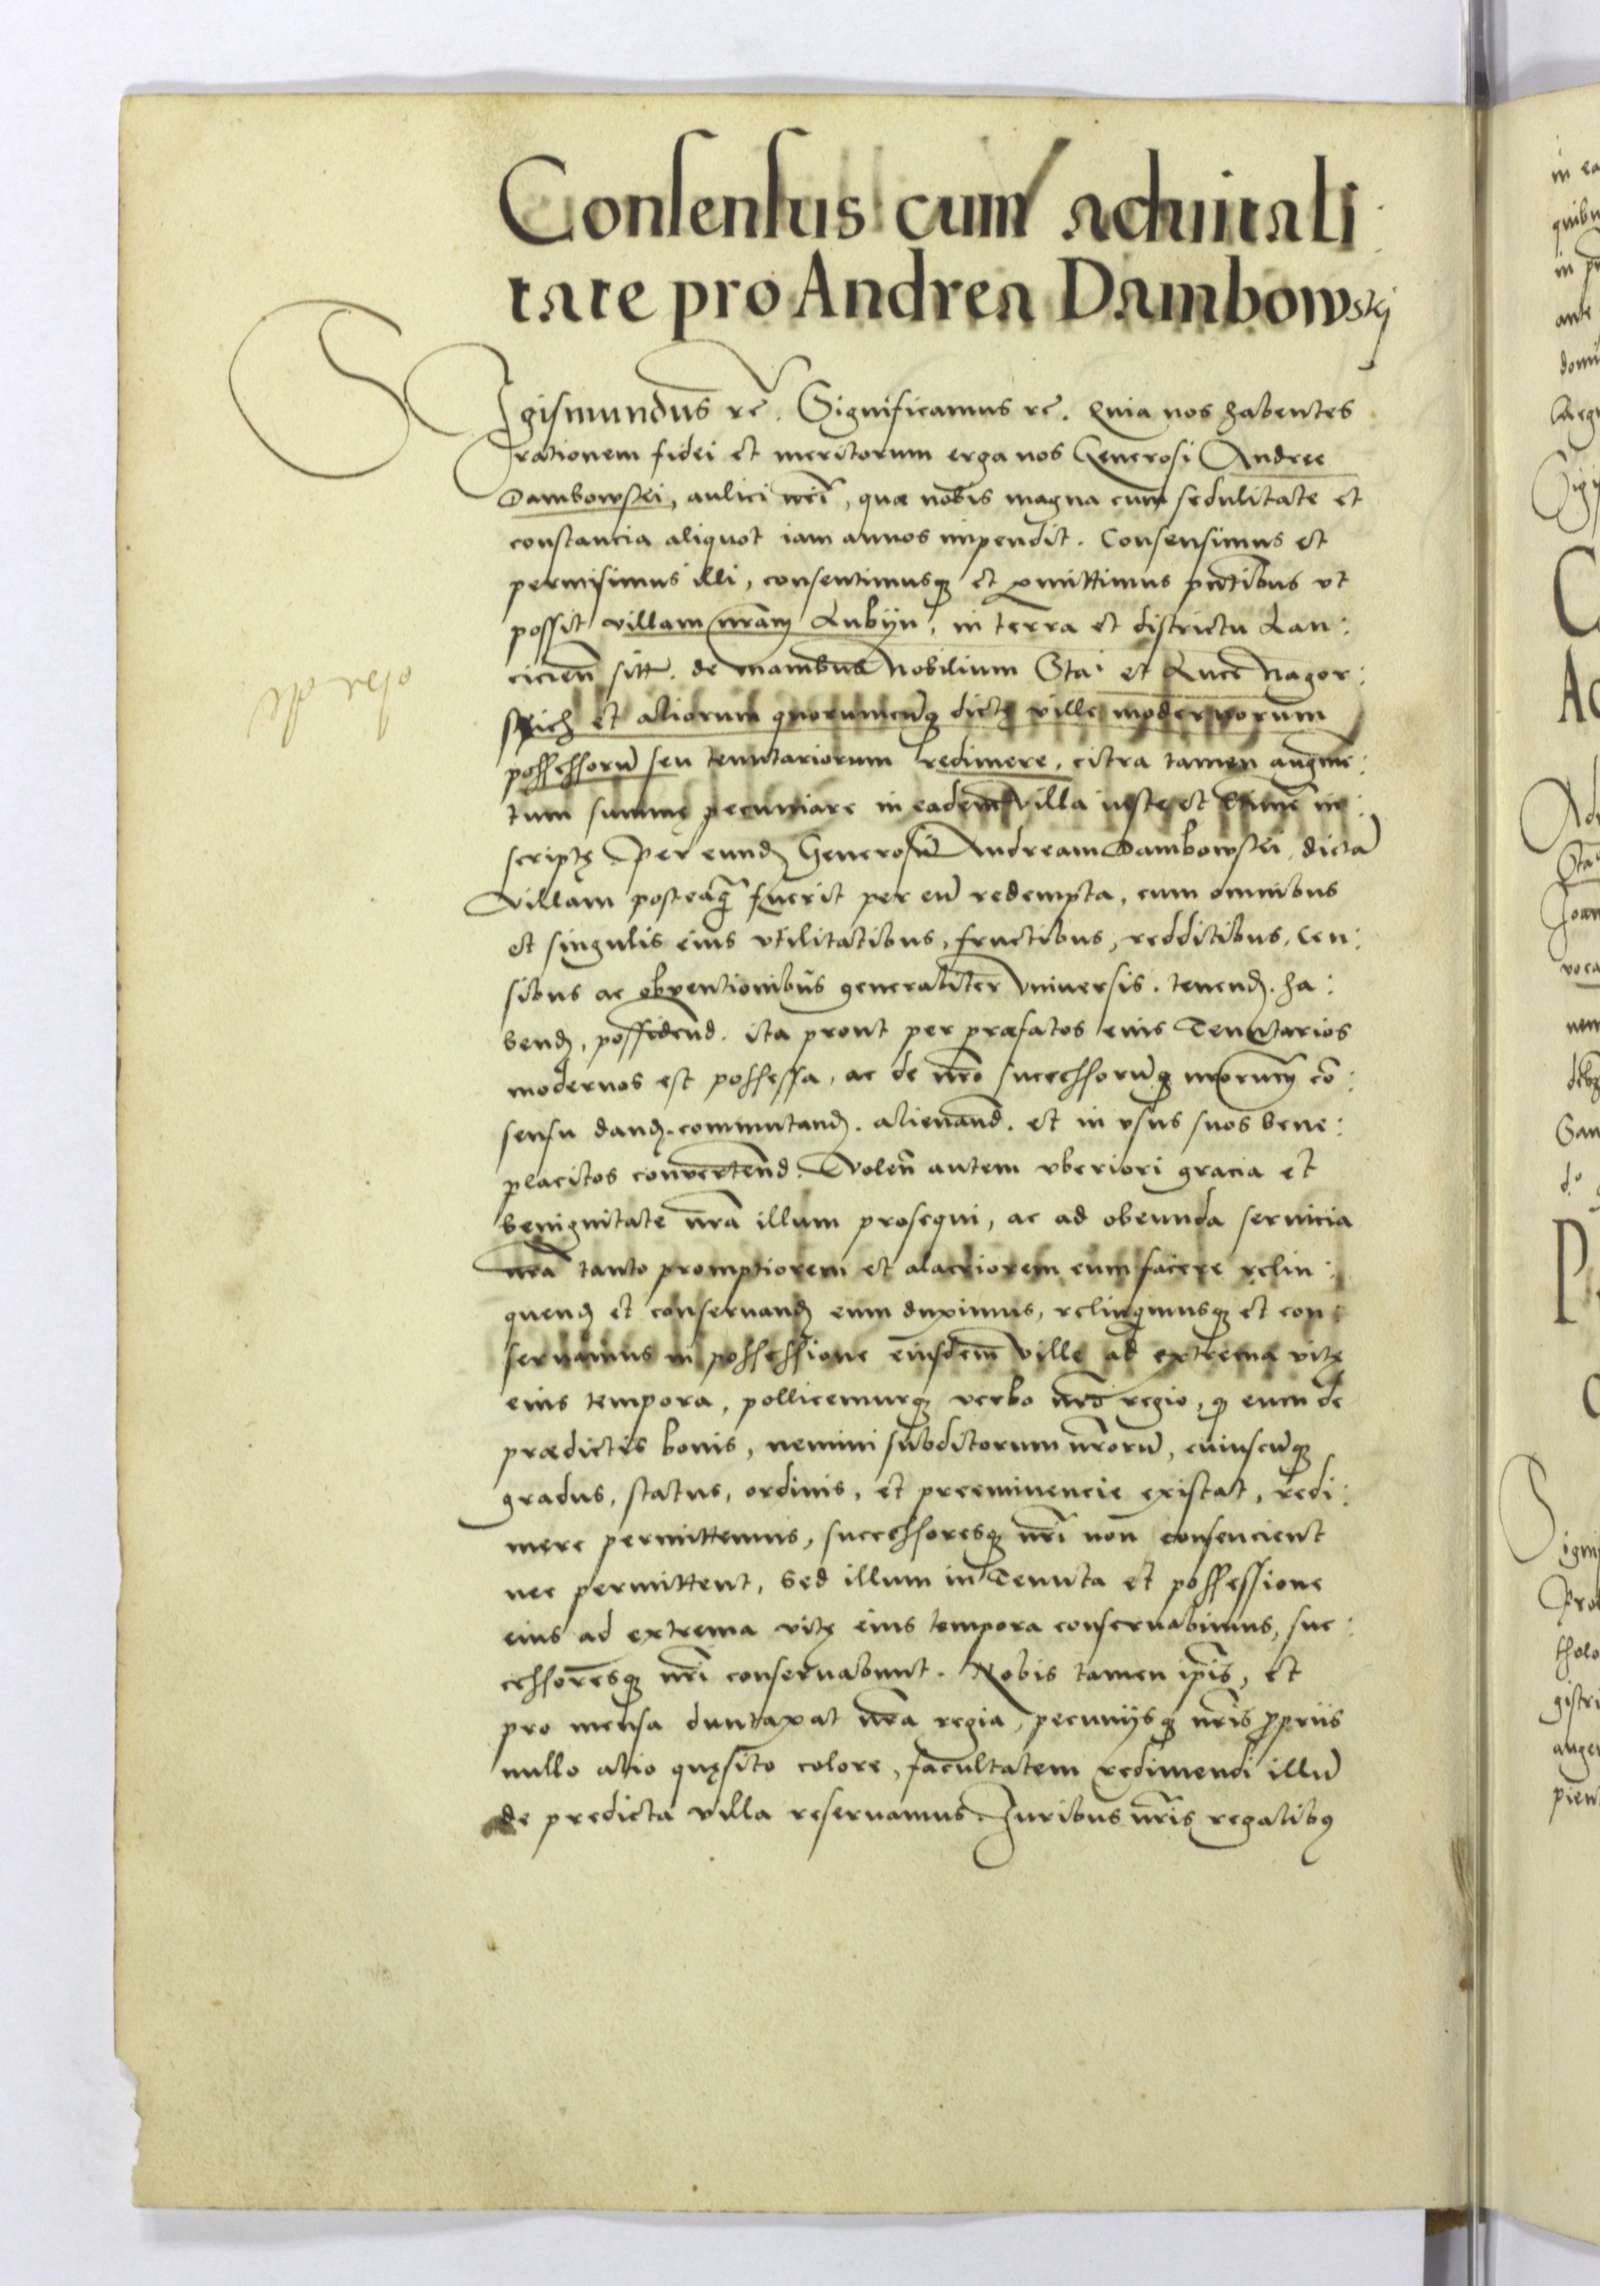 Consensus cum aduitali
tate pro Andrea Dambowskj
SIgismundus rc̃. Significamus rc̃. Quia nos habentes
rationem fidei et meritorum erga nos Generosi Andree
Dambowskj, aulici nr̃i, quæ nobis magna cum sedulitate et
constancia aliquot iam annos impendit. Consensimus et
permisimus illi, consentimusq; et p̱mittimus pñtibus vt
possit villam nr̃am Lubyn, in terra et districtu Lan:
cicieñ sitt. de manibus Nobilium Sta: et Luce Nagor:
skich et aliorum quorumcũq; dictę ville modernorum
possessorũ seu tenutariorum redimere, citra tamen augmẽ:
tum summę pecuniare in eadem villa iuste et in:
scriptę Per eund. Generosũ Andream Dambowskj, dictã
Villam posteaq̃ fuerit per eũ redempta, cum omnibus
et singulis eius vtilitatibus, fructibus, redditibus, Cen:
sibus ac obventionibus generaliter Vniuersis. tenend. ha:
bend, possidend. ita prout per præfatos eius Tenutarios
modernos est possessa, ac de nr̃o successorũq; nr̃orum cõ:
sensu dand. commutand. alienand. et in vsus suos bene:
placitos convertend. Voleñ autem vberiori gracia et
benignitate nr̃a illum prosequi, ac ad obeunda seruicia
nr̃a tanto promptiorem et alacriorem eum facere relin:
quend et conseruand eum duximus, relinquimusq; et con:
seruamus in possessione eiusdem ville ad extrema vitę
eius tempora, pollicemurq; verbo nr̃o regio, q̃ eum de
prædictis bonis, nemini subditorum nr̃orũ, cuiuscũq;
gradus, status, ordinis, et preeminencie existat, redi:
mere permittemus, successoresq; nr̃i non consencient
nec permittent, Sed illum in Tenuta et possessione
eius ad extrema vitę eius tempora conseruabimus, suc:
cessoresq; nr̃i conseruabunt. Nobis tamen ip̃is, et
pro mensa duntaxat nr̃a regia, pecunijsq; nr̃is p̱priis
nullo alio quęsito colore, facultatem redimendi illũ
de predicta villa reseruamus Iuribus nr̃is regalibꝰ